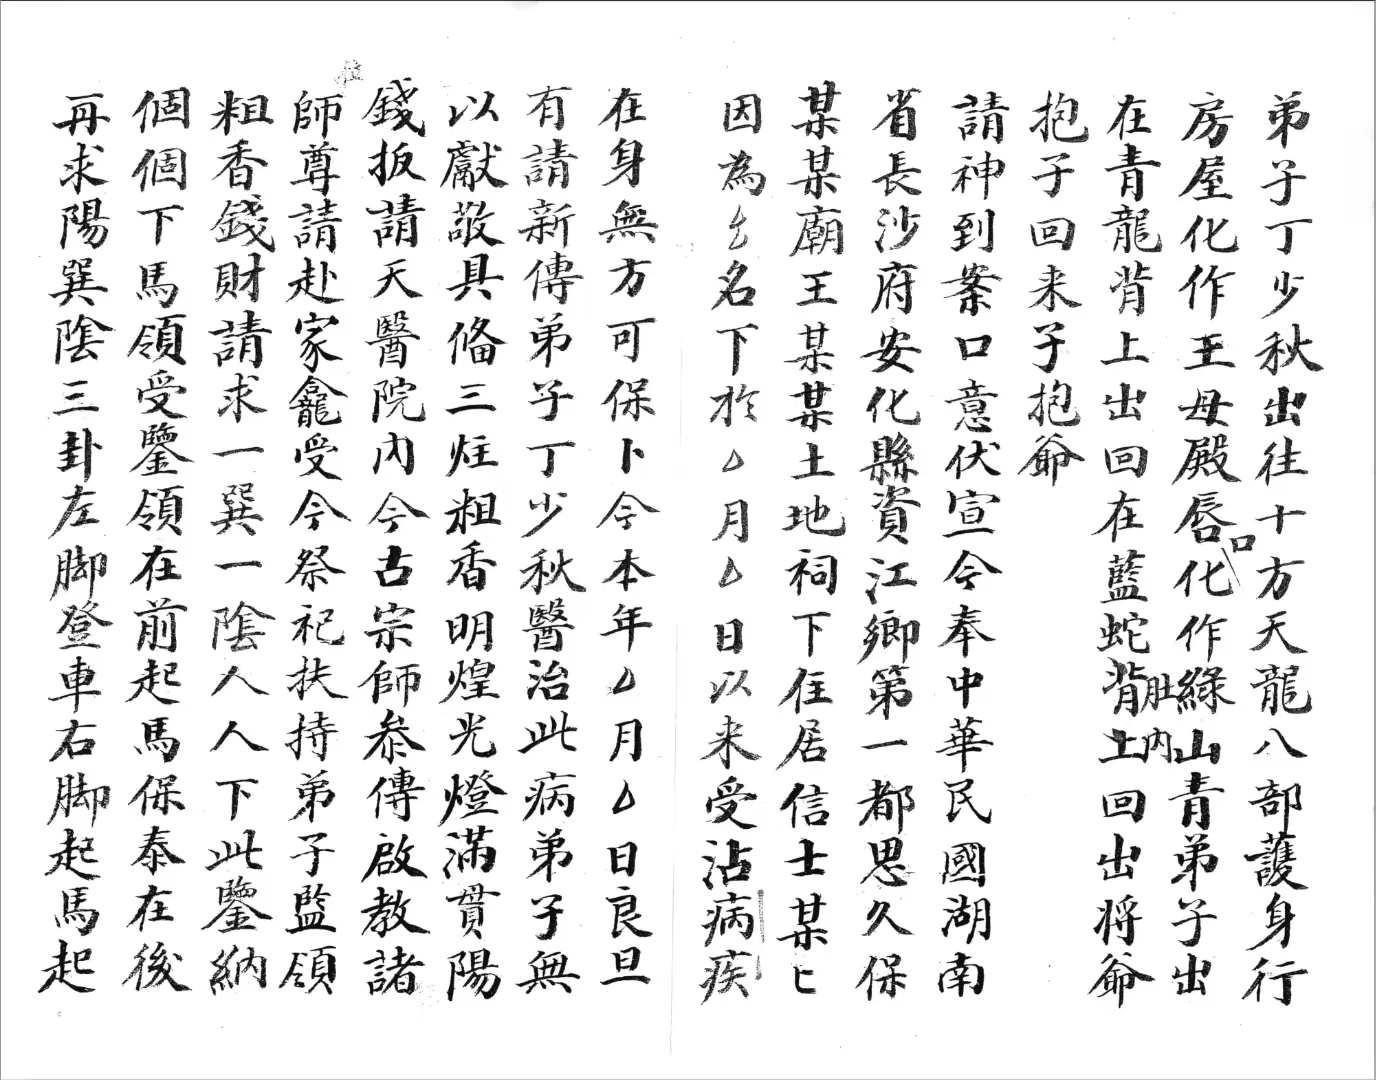 弟子丁少秋出往十方天龍八部護身行
房屋化作王母殿唇口化作綠山青弟子出
在青龍背上出回在藍蛇背肚內上回出将爺
抱子回来子抱爺
請神到案口意伏宣今奉中華民國湖南
省長沙府安化縣資江鄉第一都思久保
某某廟王某某土地祠下住居信士某匕
因為厶名下於厶月厶日以来受沾病疾
在身無方可保卜今本年厶月厶日良旦
有請新傳弟子丁少秋醫治此病弟子無
以獻敬具俻三炷粗香明煌光燈滿貫陽
錢扳請天醫院內今古宗師叅傳啟教諸
師尊請赴家龕受今祭祀扶持弟子監領
粗香錢財請求一巽一陰人人下此鑒納
個個下馬領受鑒領在前起馬保泰在後
再求陽巽陰三卦左脚登車右脚起馬起